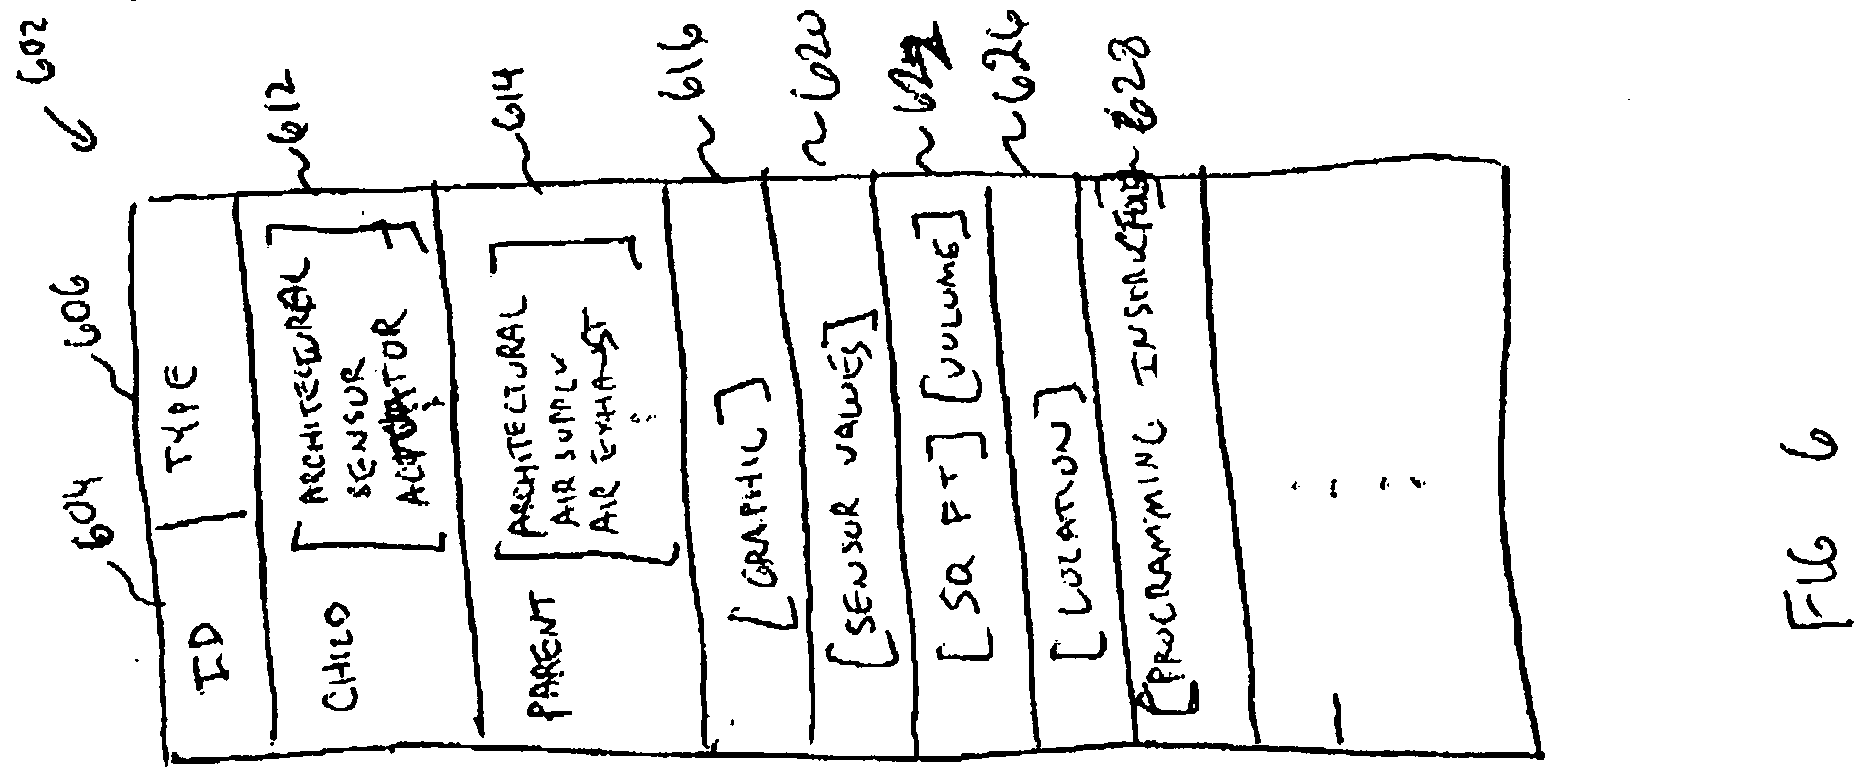 602
604
606
ID | TYPE
612
CHILD [ARCHITECTURAL
SENSOR
ACTUATOR
:
]
614
PARENT [ARCHITECTURAL
AIR SUPPLY
AIR EXHAUST
:
]
616
[GRAPHIC]
620
[SENSOR VALUES]
[SQ FT] [VOLUME]
626
[LOCATION]
628
[PROGRAMING INSTRUCTION]
. . . .
FIG 6